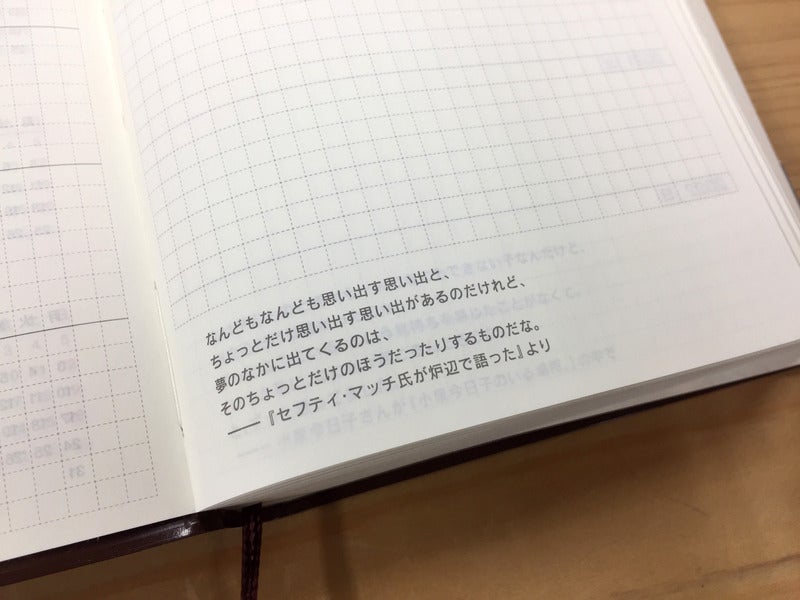 なんどもなんども思い出す思い出と、
ちょっとだけ思い出す思い出があるのだけれど、
夢のなかに出てくるのは、
そのちょっとだけのほうだったりするものだな。
――『セフティ・マッチ氏が炉辺で語った』より